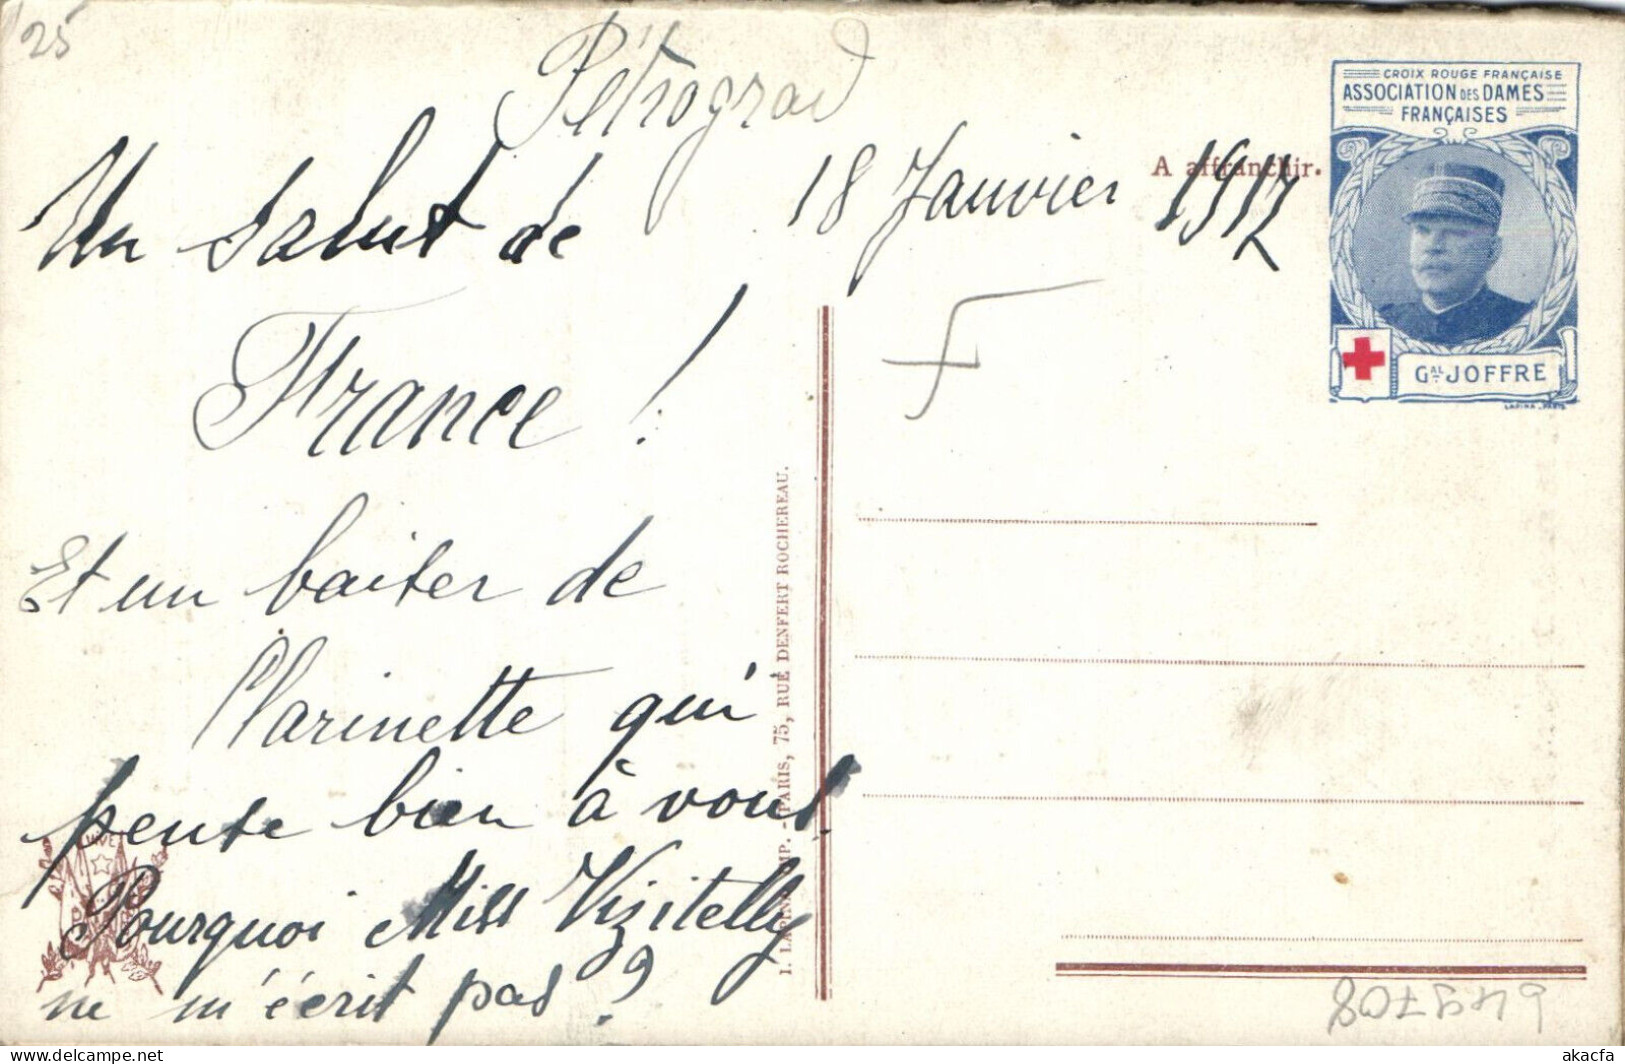 25
Pétrograd
18 Janvier 1917
Un salut de
France !
Et un baiser de
Clarinette qui
pense bien à vous.
Pourquoi Miss Vizitelly
ne m'écrit pas ?
A affranchir.
CROIX ROUGE FRANÇAISE
ASSOCIATION DES DAMES
FRANÇAISES
GAL JOFFRE
LAPINA _ PARIS
I. LAPINA, IMP. - PARIS, 75, RUE DENFERT ROCHEREAU.
VIVE
akacfa